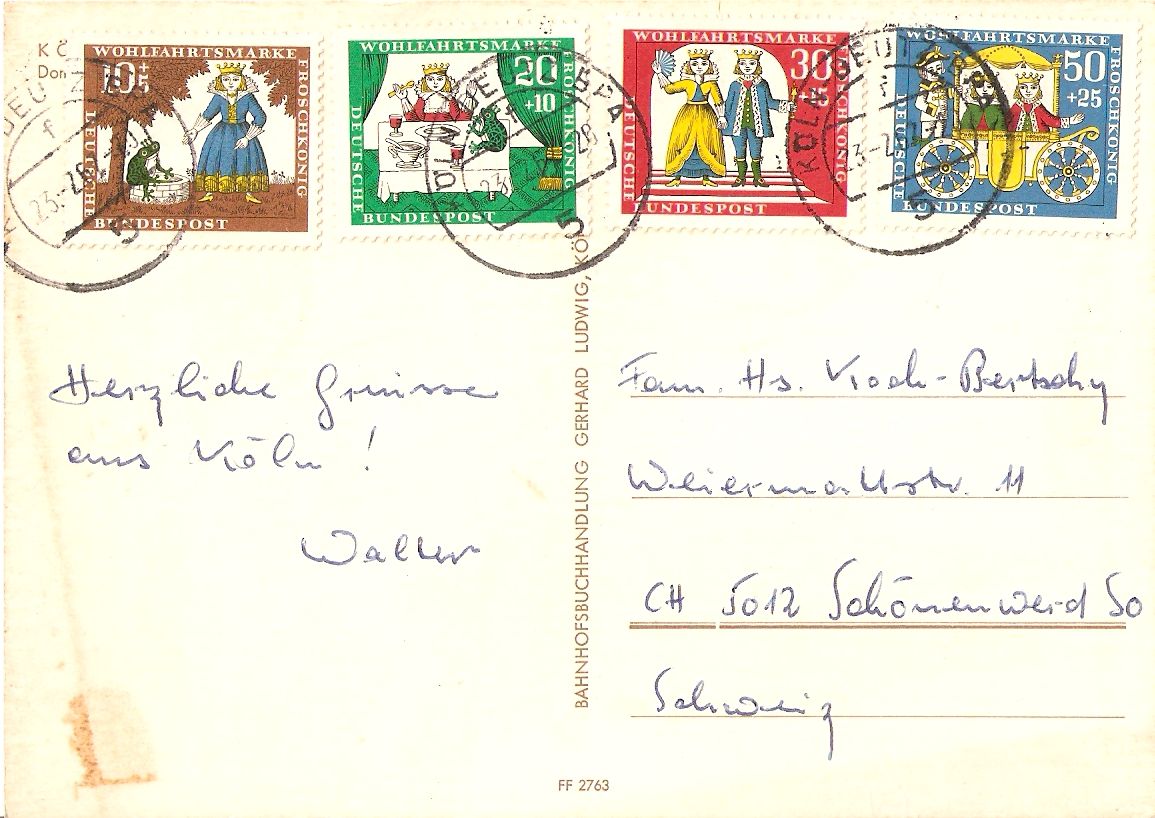 K Ö
Don
WOHLFAHRTSMARKE
10+5
FROSCHKÖNIG
DEUTSCHE
BUNDESPOST
WOHLFAHRTSMARKE
20
+10
FROSCHKÖNIG
DEUTSCHE
BUNDESPOST
WOHLFAHRTSMARKE
30
FROSCHKÖNIG
DEUTSCHE
BUNDESPOST
WOHLFAHRTSMARKE
50
+25
FROSCHKÖNIG
DEUTSCHE
BUNDESPOST
KÖLN-DEUTZ
5
Herzliche Grüsse
aus Köln !
Walter
BAHNHOFSBUCHHANDLUNG GERHARD LUDWIG, KÖL
Fam. Hs. Koch-Bertschy
Weiermattstr. 11
CH 5012 Schönenwerd So
Schweiz
FF 2763